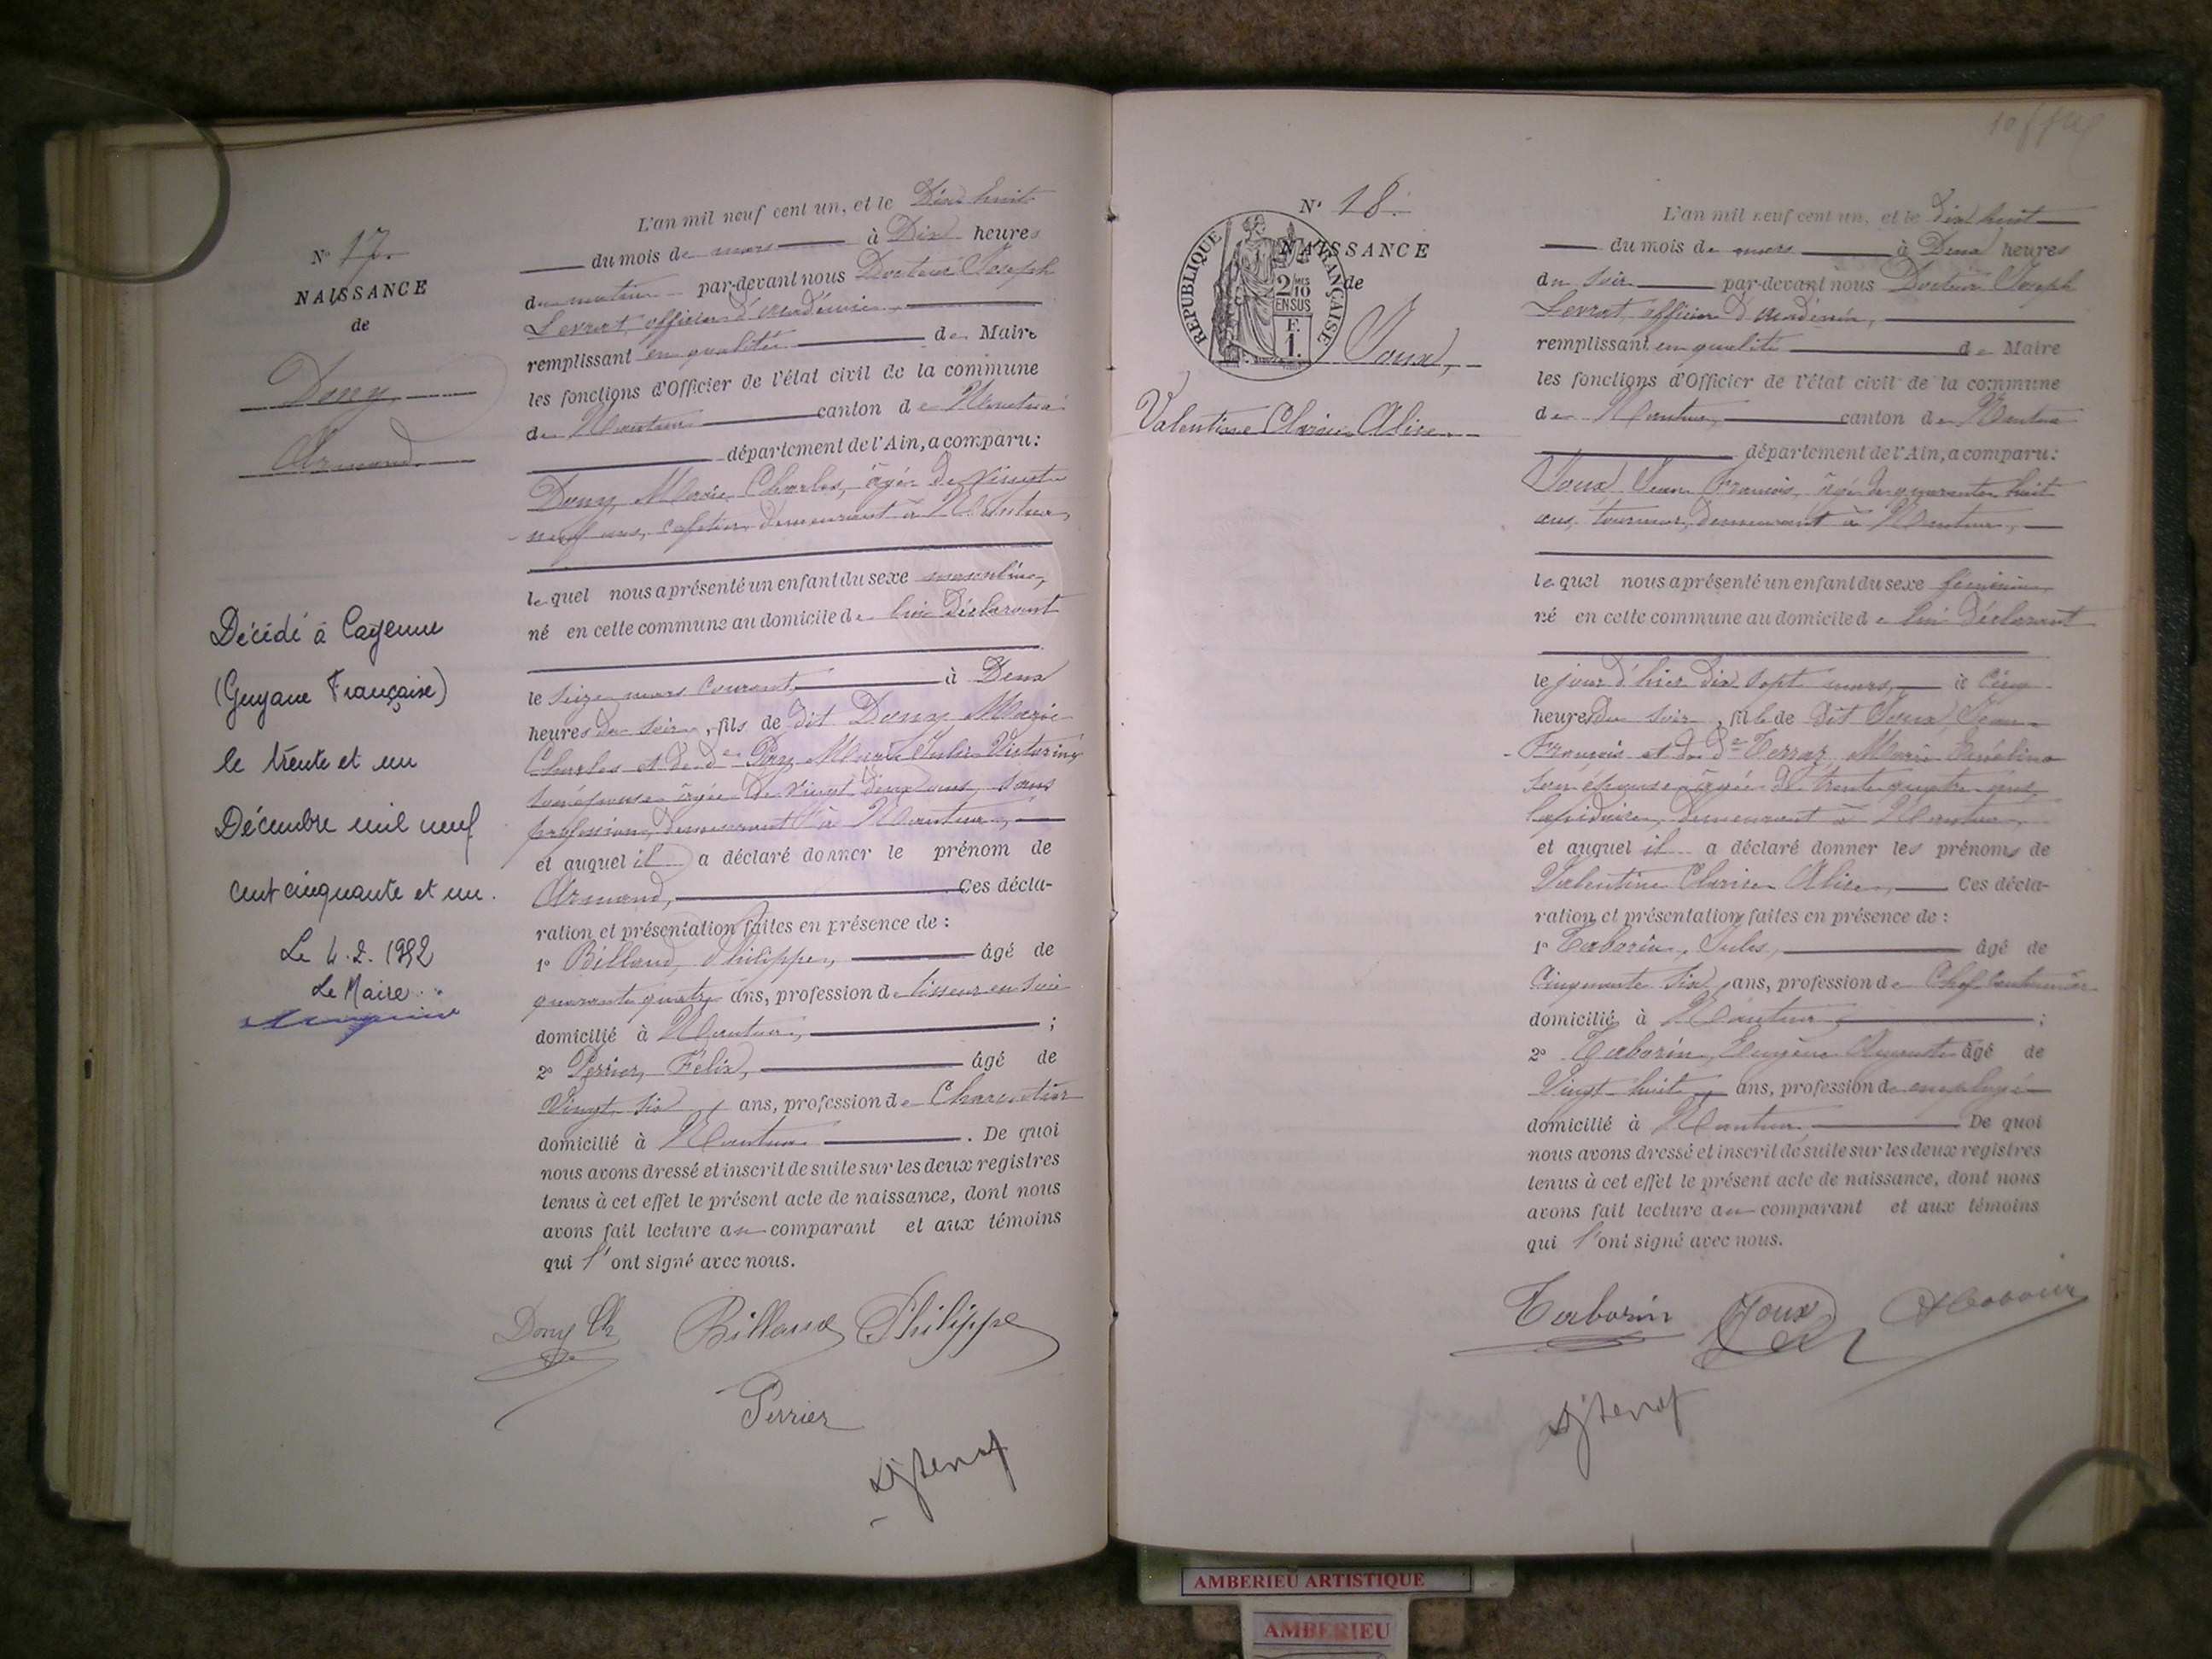 N° 17.
NAISSANCE
de
Dony
Armand
Décédé à Cayenne
(Guyane Française)
le trente et un
Décembre mil neuf
cent cinquante et un.
Le 4.2.1952
Le Maire
L'an mil neuf cent un, et le Dix huit
du mois de mars à Dix heures
du matin par-devant nous Docteur Joseph
Levrat officier d'académie
remplissant en qualité de Maire
les fonctions d'Officier de l'état civil de la commune
de Nantua canton de Nantua
département de l'Ain, a comparu:
Dony Marie Charles, âgé de vingt
neuf ans, cafetier, demeurant à Nantua,
lequel nous a présenté un enfant du sexe masculin,
né en cette commune au domicile de lui déclarant
le seize mars courant, à Deux
heures du soir, fils de dit Dony Marie
Charles et de de Marie Julie Victorine
son épouse âgée de vingt deux ans, sans
profession, demeurant à Nantua,
et auquel il a déclaré donner le prénom de
Armand, Ces décla-
ration et présentation faites en présence de :
1° Billaud, Philippe, âgé de
quarante quatre ans, profession de tisseur en soie
domicilié à Nantua, ;
2° Perrier, Félix, âgé de
Vingt six ans, profession de Charcutier
domicilié à Nantua . De quoi
nous avons dressé et inscrit de suite sur les deux registres
tenus à cet effet le présent acte de naissance, dont nous
avons fait lecture au comparant et aux témoins
qui l'ont signé avec nous.
Dony Ch Billaud Philippe
Perrier
N° 18.
NAISSANCE
de
RÉPUBLIQUE FRANÇAISE
2/10 MES
EN SUS
F.
1.
Joux,
Valentine Clarisse Alise
L'an mil neuf cent un, et le dix huit
du mois de mars à Deux heures
du soir par-devant nous Docteur Joseph
Levrat, officier d'académie,
remplissant en qualité de Maire
les fonctions d'Officier de l'état civil de la commune
de Nantua, canton de Nantua
département de l'Ain, a comparu:
Joux Jean François, âgé de quarante huit
ans, tourneur, demeurant à Nantua,
lequel nous a présenté un enfant du sexe féminin,
né en cette commune au domicile de lui déclarant
le jour d'hier dix sept mars, à Cinq
heures du soir, fille de dit Joux, Jean
François et de de Terraz, Marie
son épouse âgée de trente quatre ans,
lapidaire, demeurant à Nantua,
et auquel il a déclaré donner les prénoms de
Valentine Clarisse Alise, Ces décla-
ration et présentation faites en présence de :
1° Taborin, Jules, âgé de
Cinquante six ans, profession de Chef Cantonnier
domicilié à Nantua, ;
2° Taborin, Eugène Auguste âgé de
Vingt huit ans, profession de employé
domicilié à Nantua, De quoi
nous avons dressé et inscrit de suite sur les deux registres
tenus à cet effet le présent acte de naissance, dont nous
avons fait lecture au comparant et aux témoins
qui l'ont signé avec nous.
Taborin Joux
AMBERIEU ARTISTIQUE
AMBERIEU